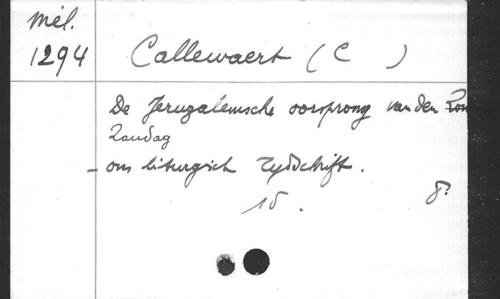 Mél.
1294 Callewaert (C )
De Jeruzalemsche oorsprong van den
Zondag
- ons liturgisch Tydschrift.
15. 8°